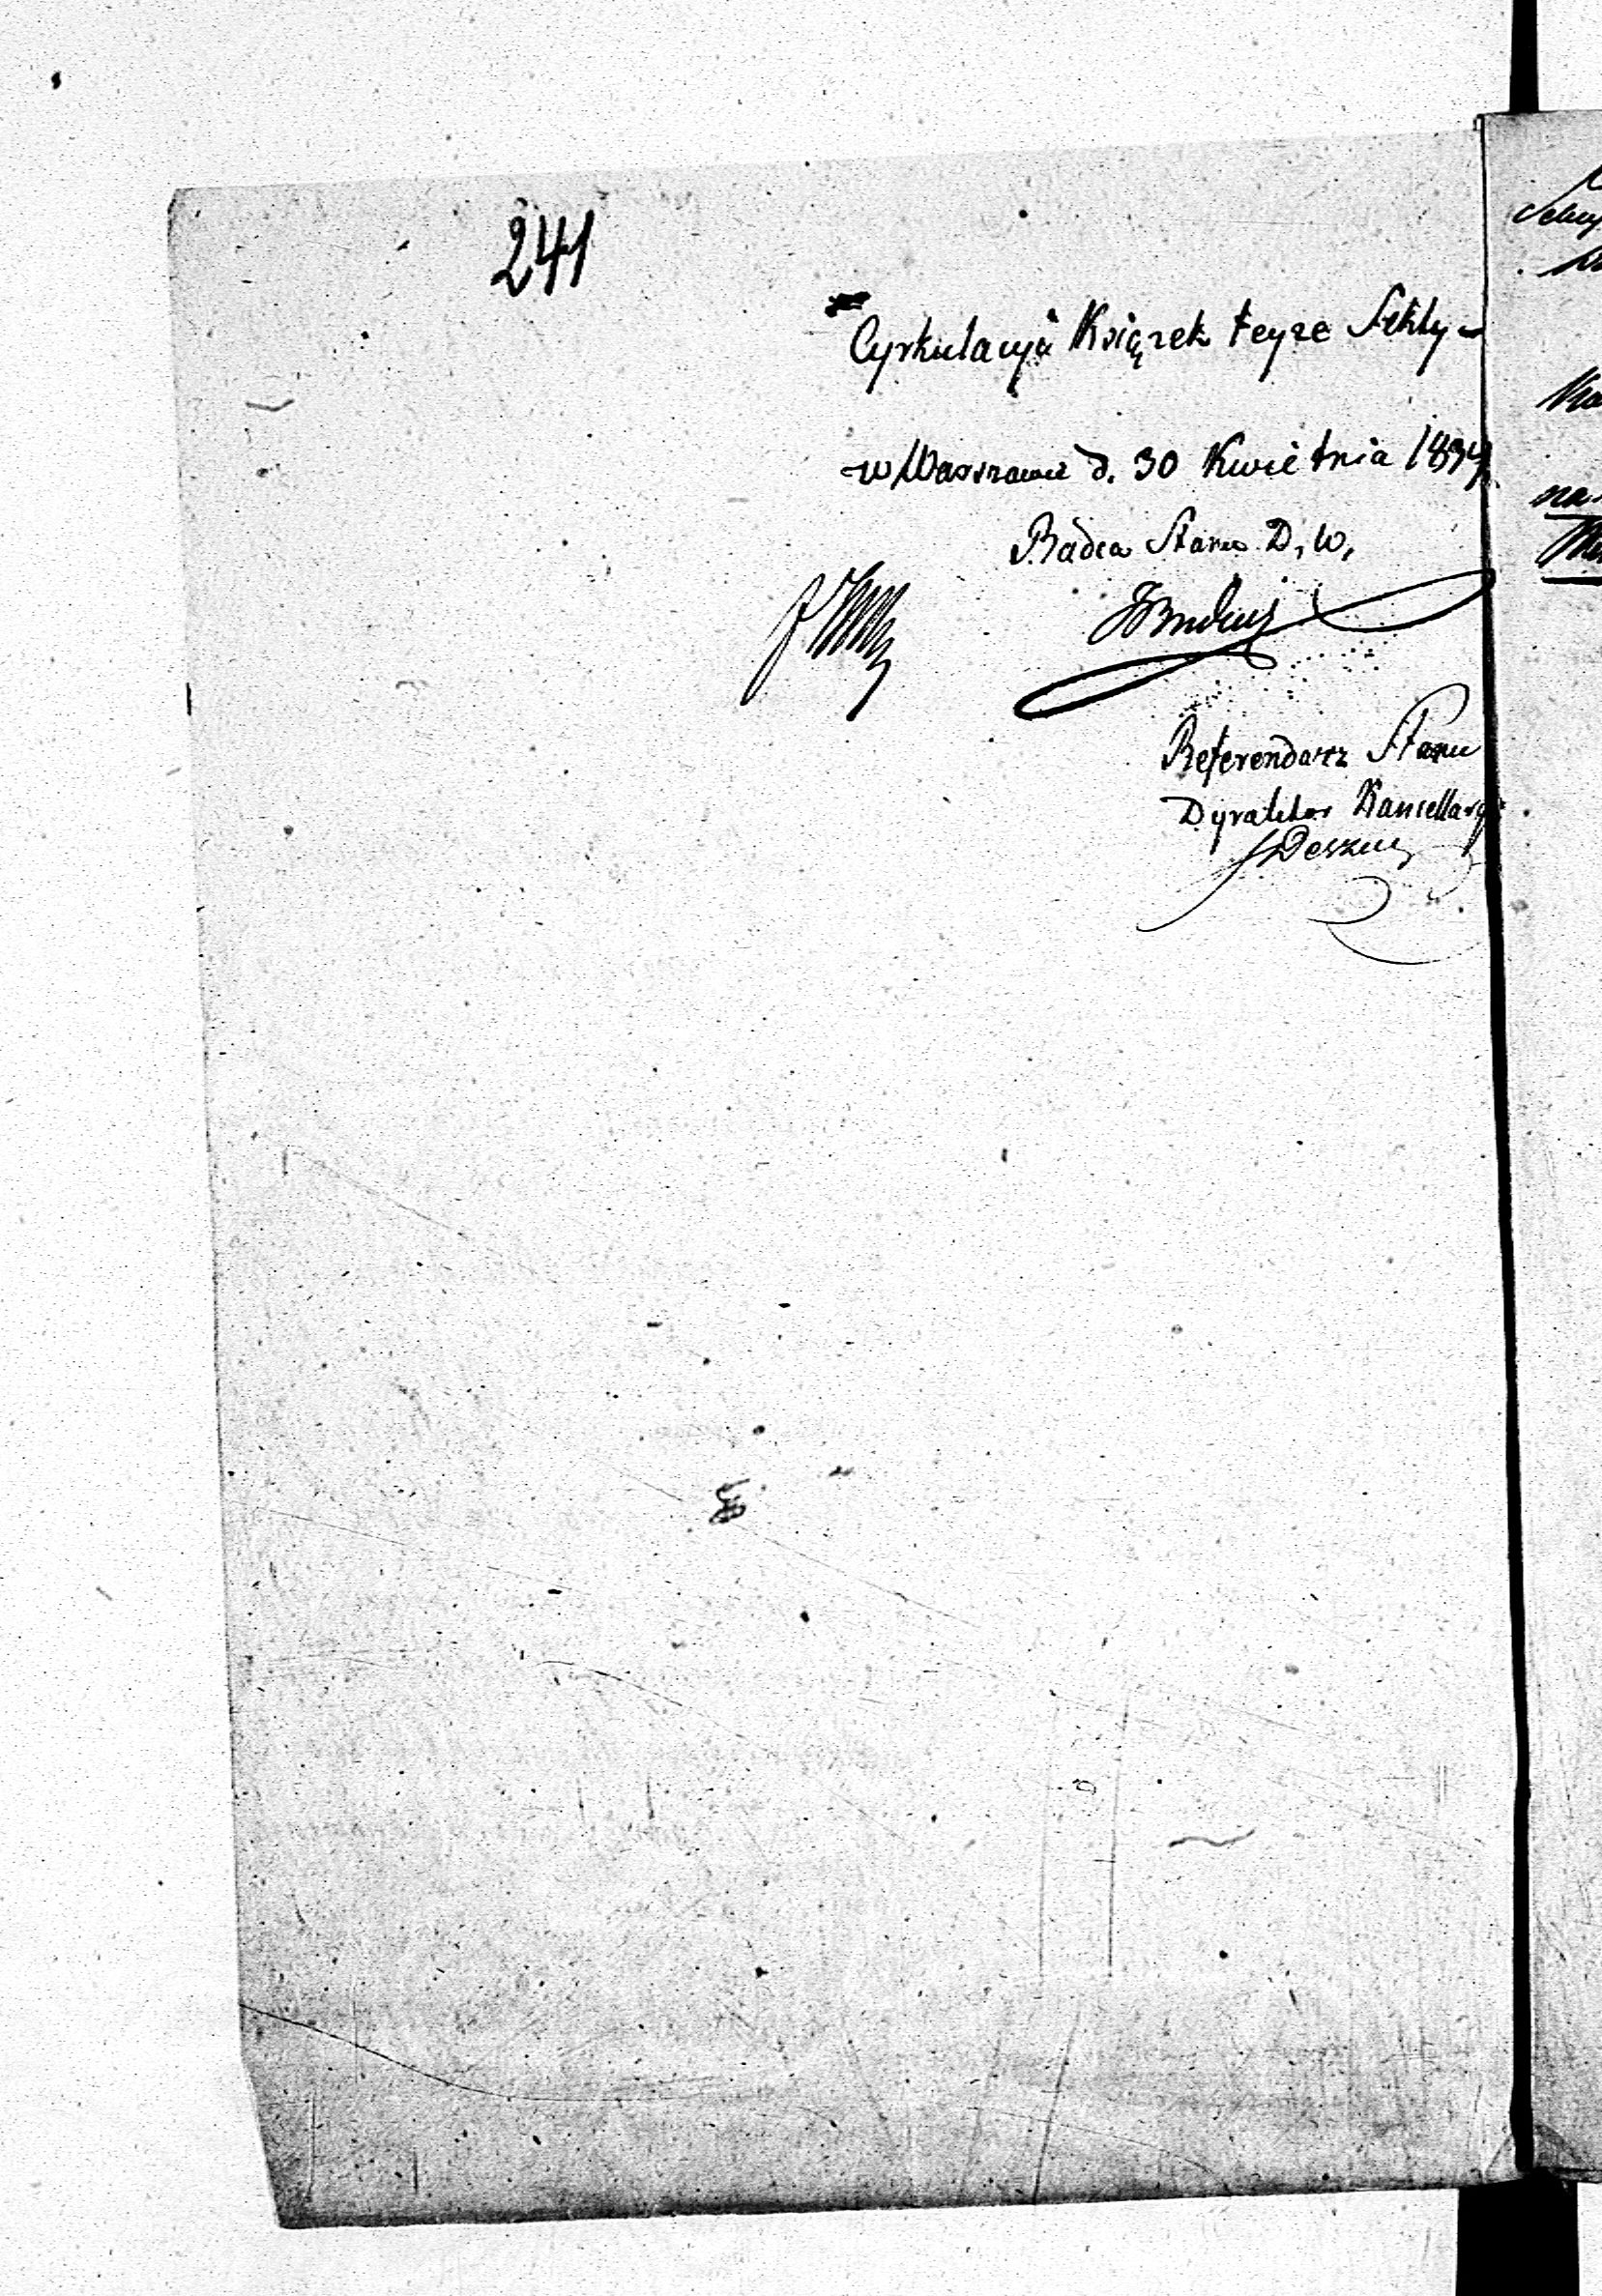 241
Cyrkulacyi Książek teyże Sekty -
w Warszawie d. 30 Kwietnia 1834
Radca Stanu D. W.
Referendarz Stanu
Dyrektor Kancellaryi